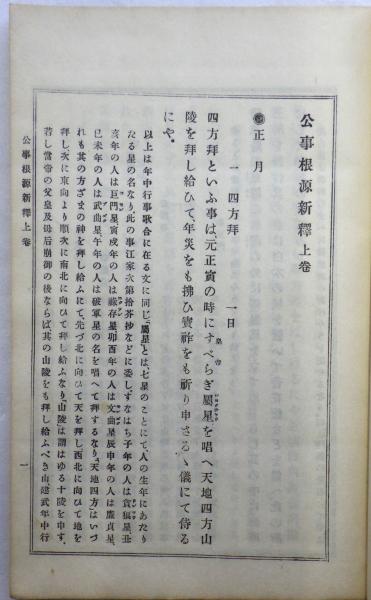 公事根源新釋上卷
正月
一 四方拜 一日
四方拜といふ事は、元正寅の時にすべらぎ屬星を唱へ天地四方山
陵を拜し給ひて、年災をも拂ひ寶祚をも祈り申さるゝ儀にて侍る
にや。
以上は年中行事歌合に在る文に同じ「屬星」とは、七星のことにて、人の生年にあたり
たる星の名なり此の事江家次第拾芥抄などに委し、すなはち子年の人は貪狼星丑
亥年の人は巨門星寅戌年の人は祿存星卯酉年の人は文曲星辰申年の人は廉貞星、
巳未年の人は武曲星、午年の人は破軍星の名を唱へて拜するなり、「天地四方」はいづ
れも其の方ざまの神を拜し給ふにて、先づ北に向ひて天を拜し、西北に向ひて地を
拜し、次に東向より順次に南北に向ひて拜し給ふなり、「山陵」は謂はゆる十陵を申す、
若し當帝の父皇及母后崩御の後ならば、其の山陵をも拜し給ふべき由建武年中行
公事根源新釋上卷
一